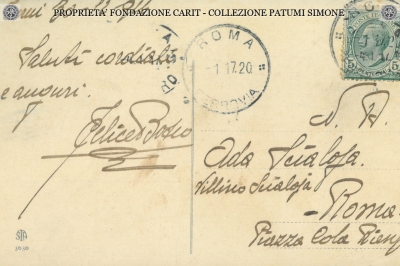 PROPRIETA' FONDAZIONE CARIT - COLLEZIONE PATUMI SIMONE
Saluti cordiali
e auguri.
Felice Bosco
ROMA
ROMA
-1 1 17.20
FERROVIA
5
N. H.
Ada Scialoja
Villino Scialoja
Roma
Piazza Cola
STA